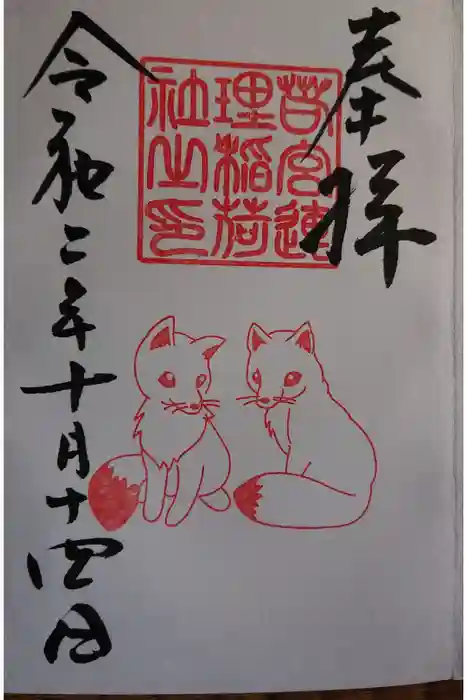 奉拝
苔宮連
理稲荷
社之印
令和二年十月十四日